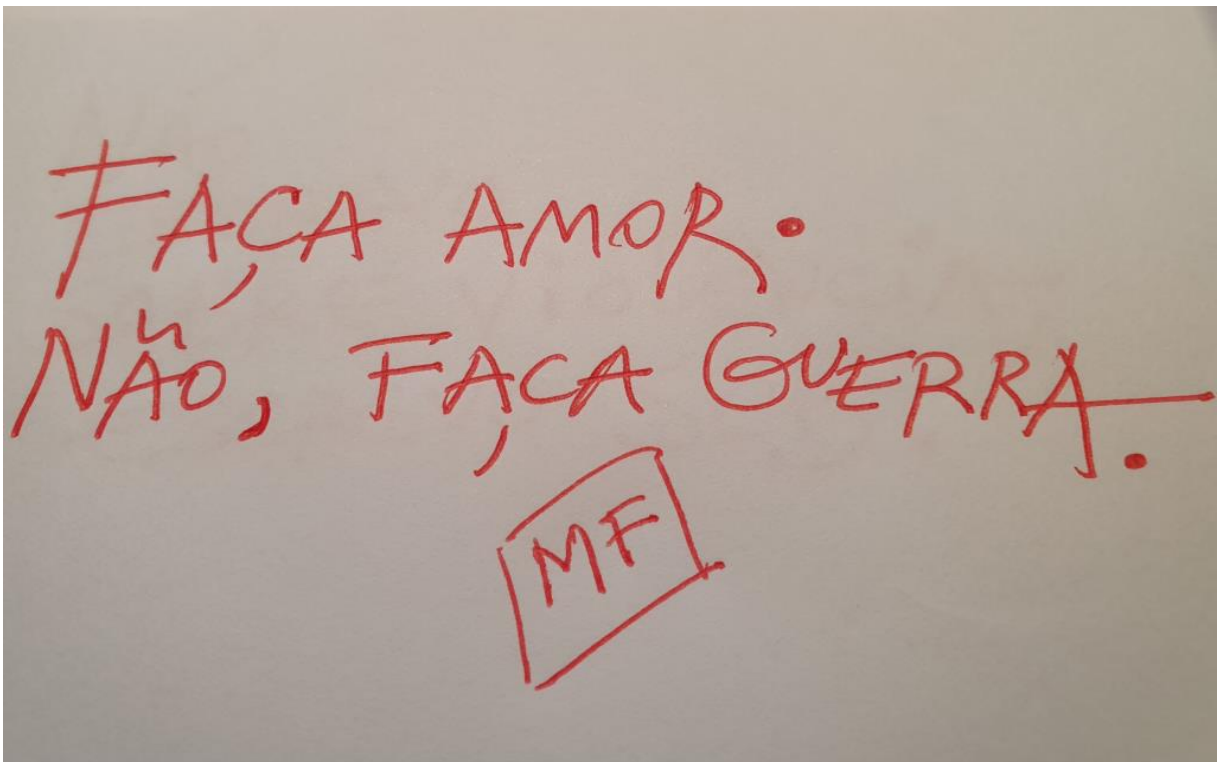 FAÇA AMOR.
NÃO, FAÇA GUERRA.
MF